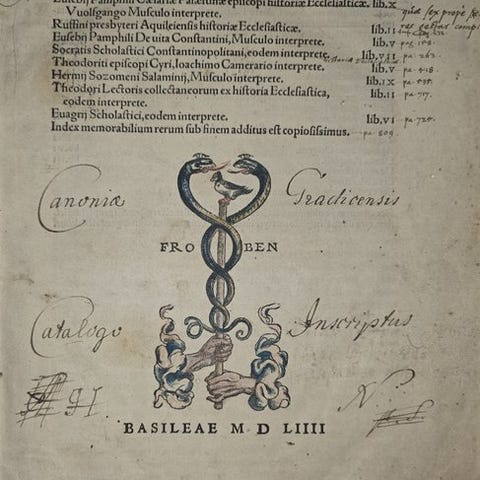 Eusebij Pamphili Cæsariæ Palæstinæ episcopi historiæ Ecclesiasticæ. lib.X
Vuolfgango Musculo interprete.
Ruffini presbyteri Aquileiensis historiæ Ecclesiasticæ. lib.II
Eusebij Pamphili De uita Constantini, Musculo interprete. lib.V
Socratis Scholastici Constantinopolitani, eodem interprete. lib.VII pa. 262.
Theodoriti episcopi Cyri, Ioachimo Camerario interprete. lib.V pa. 418.
Hermij Sozomeni Salaminij, Musculo interprete. lib.IX
Theodori Lectoris collectaneorum ex historia Ecclesiastica, lib.II pa. 717.
eodem interprete.
Euagrij Scholastici, eodem interprete. lib.VI pa. 725.
Index memorabilium rerum sub finem additus est copiosissimus. pa. 809.
Canoniæ Gradicensis
FRO BEN
Catalogo Inscriptus
91 N?
BASILEAE M D LIIII